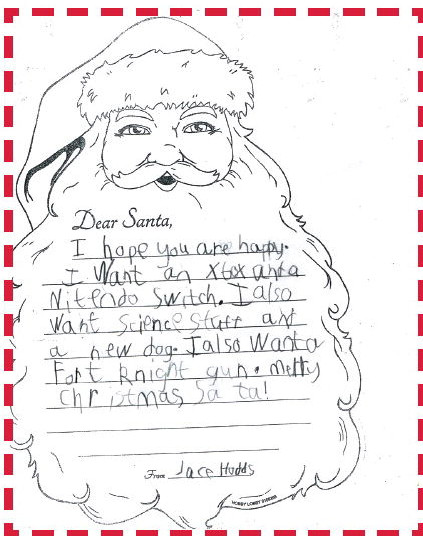 Dear Santa,
I hope you are happy.
I Want an Xbox anta
Nitendo Switch. I also
Want Science Stuff ant
a new dog. I also Want a
Fort knight gun. merry
Christmas, Sa ta!
From Jace Hudds
HOBBY LOBBY